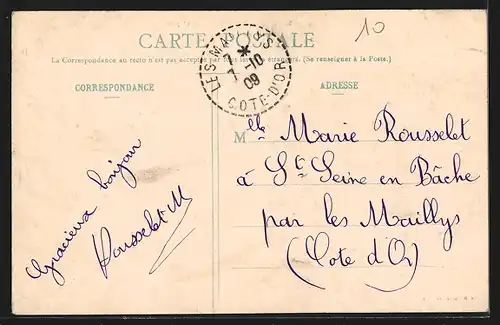 10
CARTE POSTALE
La Correspondance au recto n'est pas acceptée par tous les pays étrangers. (Se renseigner à la Poste.)
CORRESPONDANCE
ADRESSE
LES MAILLYS
7 -10
09
COTE-D'OR
Gracieux bonjour
Rousselet M
Mlle Marie Rousselet
à St Seine en Bâche
par les Maillys
(Cote d'Or)